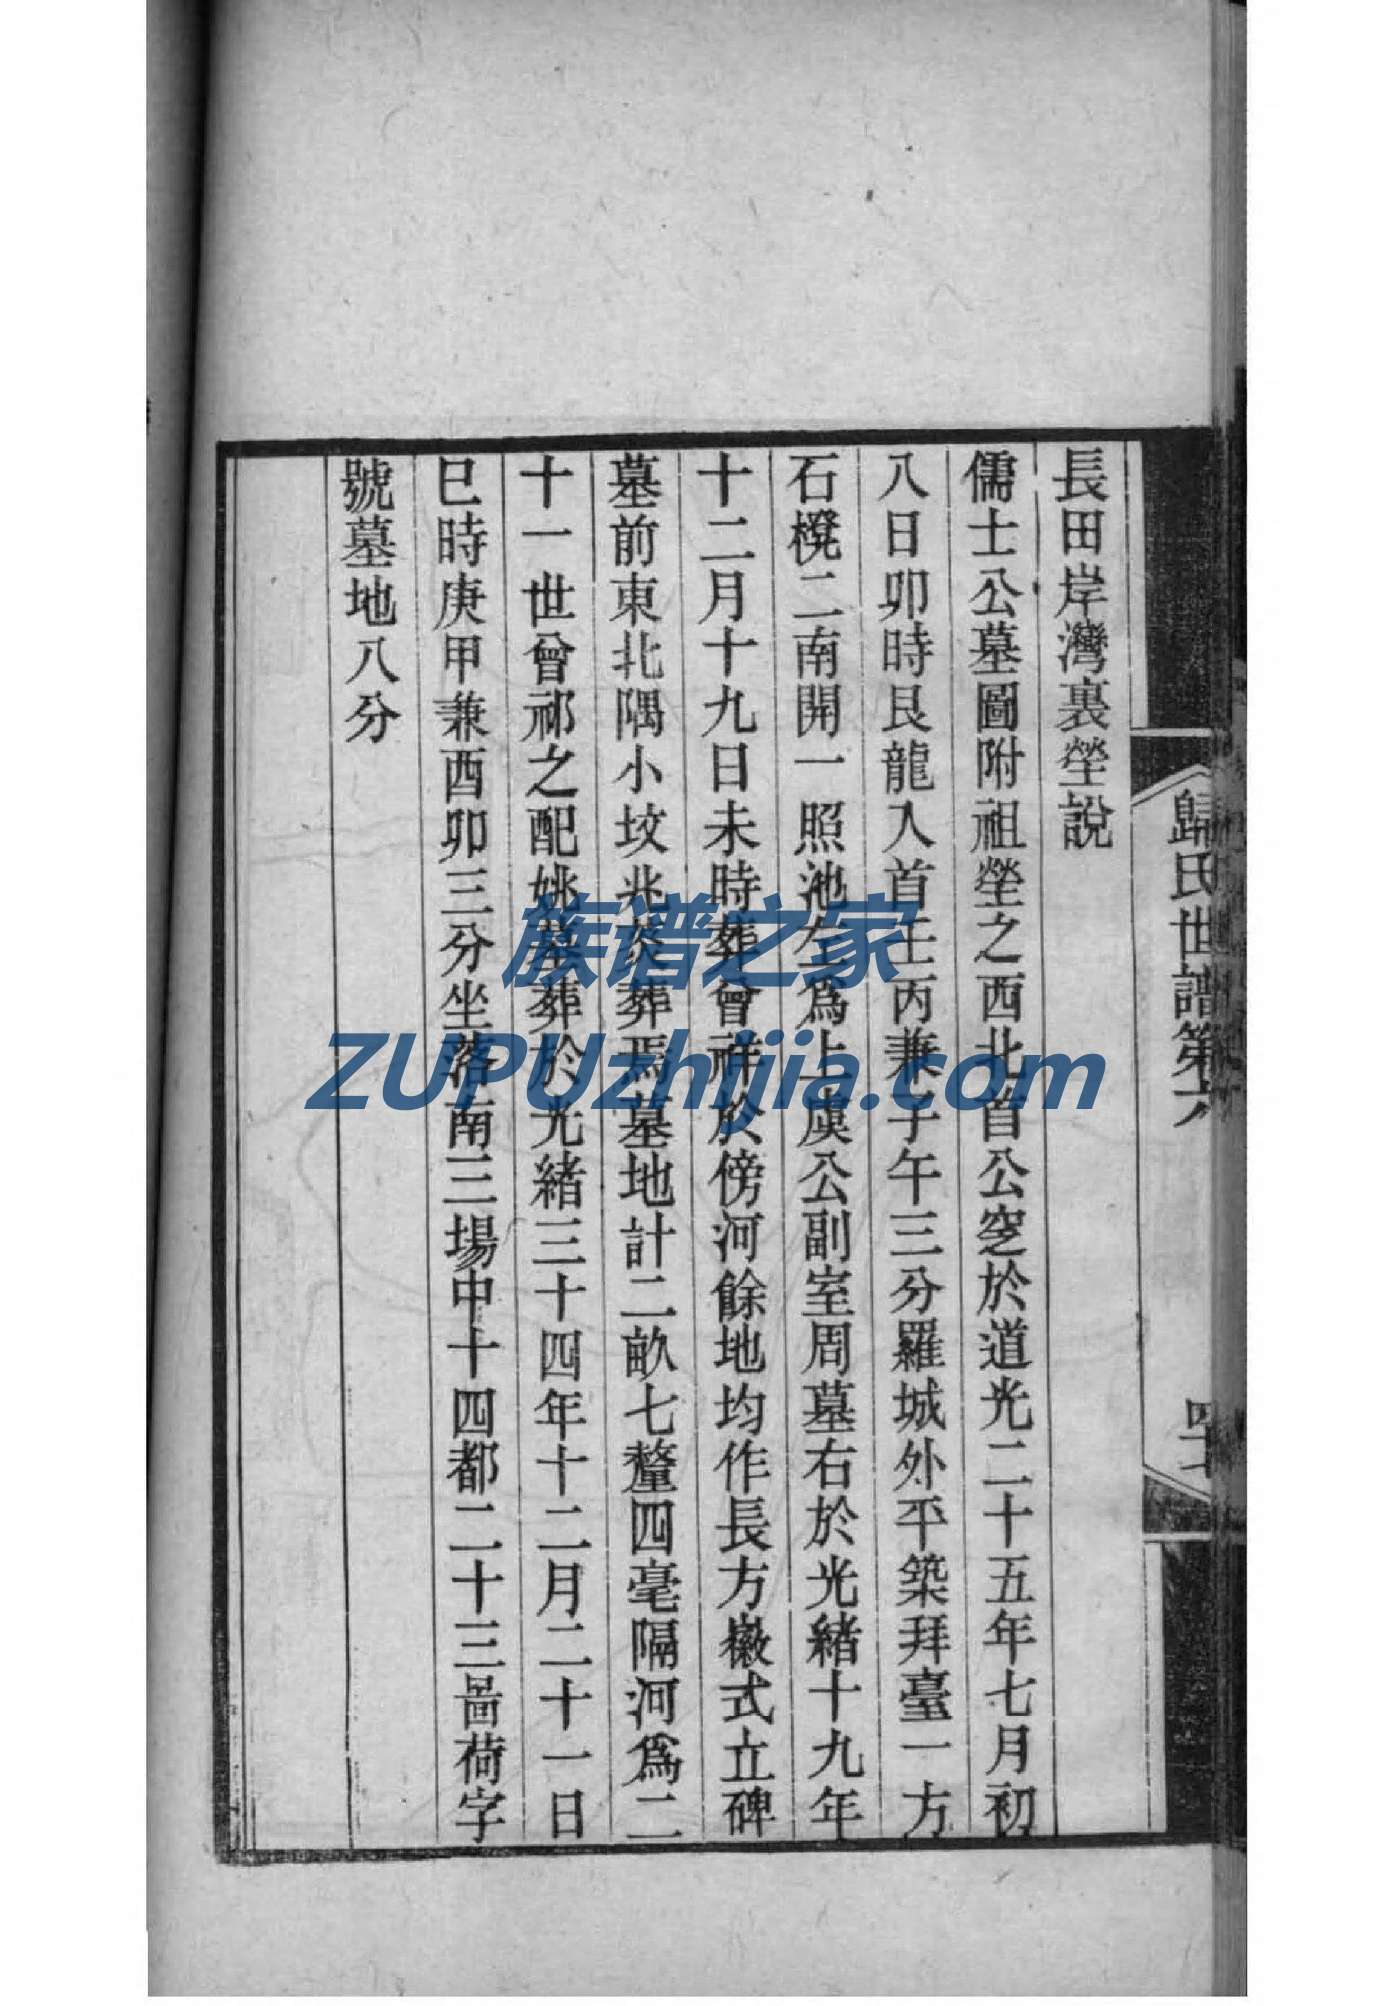 歸氏世譜第六
長田岸灣裏塋說
儒士公墓圖附祖塋之西北首公窆於道光二十五年七月初
八日卯時艮龍入首壬丙兼子午三分羅城外平築拜臺一方
石櫈二南開一照池左爲上虞公副室周墓右於光緒十九年
十二月十九日未時葬曾祥於傍河餘地均作長方嶶式立碑
墓前東北隅小坟兆葬焉墓地計二畝七釐四毫隔河爲二
十一世曾祁之配姚墓葬於光緒三十四年十二月二十一日
巳時庚甲兼酉卯三分坐落南三場中十四都二十三啚荷字
號墓地八分
族谱之家
ZUPUzhijia.com